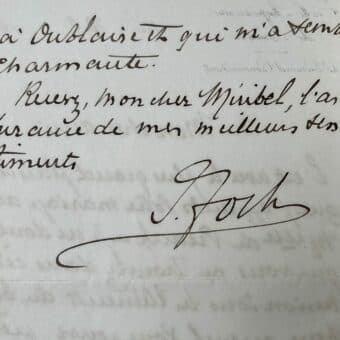 à Oublaise et qui m'a sem
charmante.
Recevez, mon cher Miribel, l'as
surance de mes meilleurs sen
timents
F. Foch